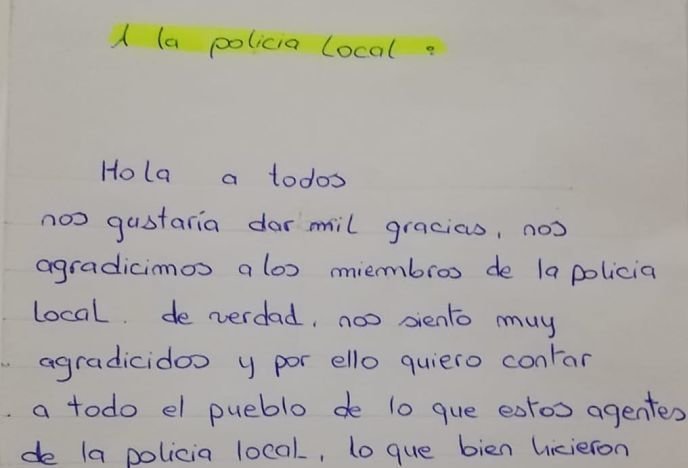 A la policia local:
Hola a todos
nos gustaría dar mil gracias, nos
agradicimos a los miembros de la policia
local. de verdad, nos siento muy
agradicidos y por ello quiero contar
a todo el pueblo de lo que estos agentes
de la policia local, lo que bien hicieron